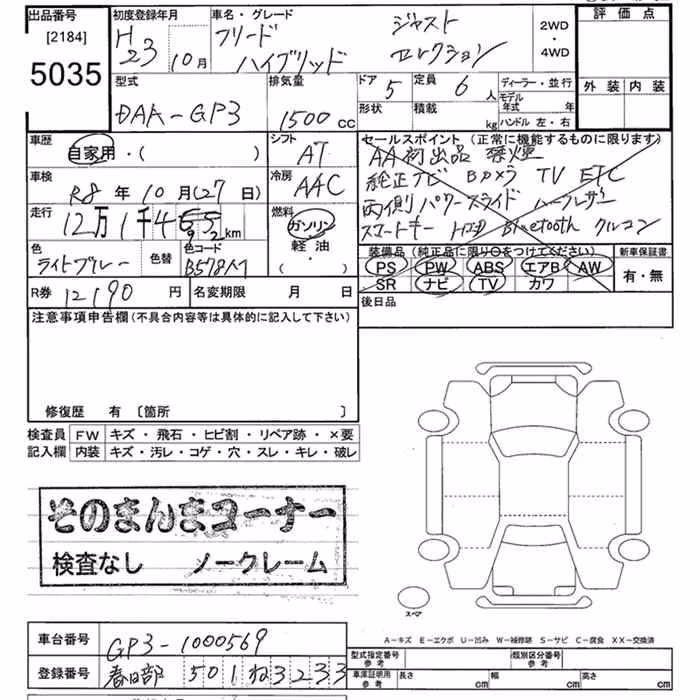 出品番号
[2184]
5035
初度登録年月
H23 10月
車名・グレード
フリード ハイブリッド
ジャスト セレクション
2WD
・
4WD
評価点
外装 内装
型式
DAA-GP3
排気量
1500cc
ドア 5
定員 6人
形状
積載 kg
ディーラー・並行
モデル年式 年
ハンドル 左・右
車歴
自家用・( )
シフト
AT
車検
R8年10月(27日)
冷房
AAC
走行
12万1千4 km
燃料
ガソリン
・
軽油
・
( )
色
ライトブルー
色替
色コード
B578M
R券 12190円
名変期限 月 日
セールスポイント(正常に機能するものに限ります)
AA初出品 禁煙
純正ナビ Bカメラ TV ETC
両側パワースライド ハーフレザー
スマートキー Bluetooth クルコン
装備品(純正品に限り○をつけてください)
PS PW ABS エアB AW
SR ナビ TV カワ
新車保証書
有・無
後日品
注意事項申告欄(不具合内容等は具体的に記入して下さい)
修復歴 有〔箇所 〕
検査員記入欄
FW キズ・飛石・ヒビ割・リペア跡・×要
内装 キズ・汚レ・コゲ・穴・スレ・キレ・破レ
そのまんまコーナー
検査なし ノークレーム
スペア
A-キズ E-エクボ U-凹み W-補修跡 S-サビ C-腐食 XX-交換済
車台番号 GP3-1000569
登録番号 春日部 501 ね 3233
型式指定番号 参考
類別区分番号 参考
車庫証明用 参考
長さ cm
幅 cm
高さ cm